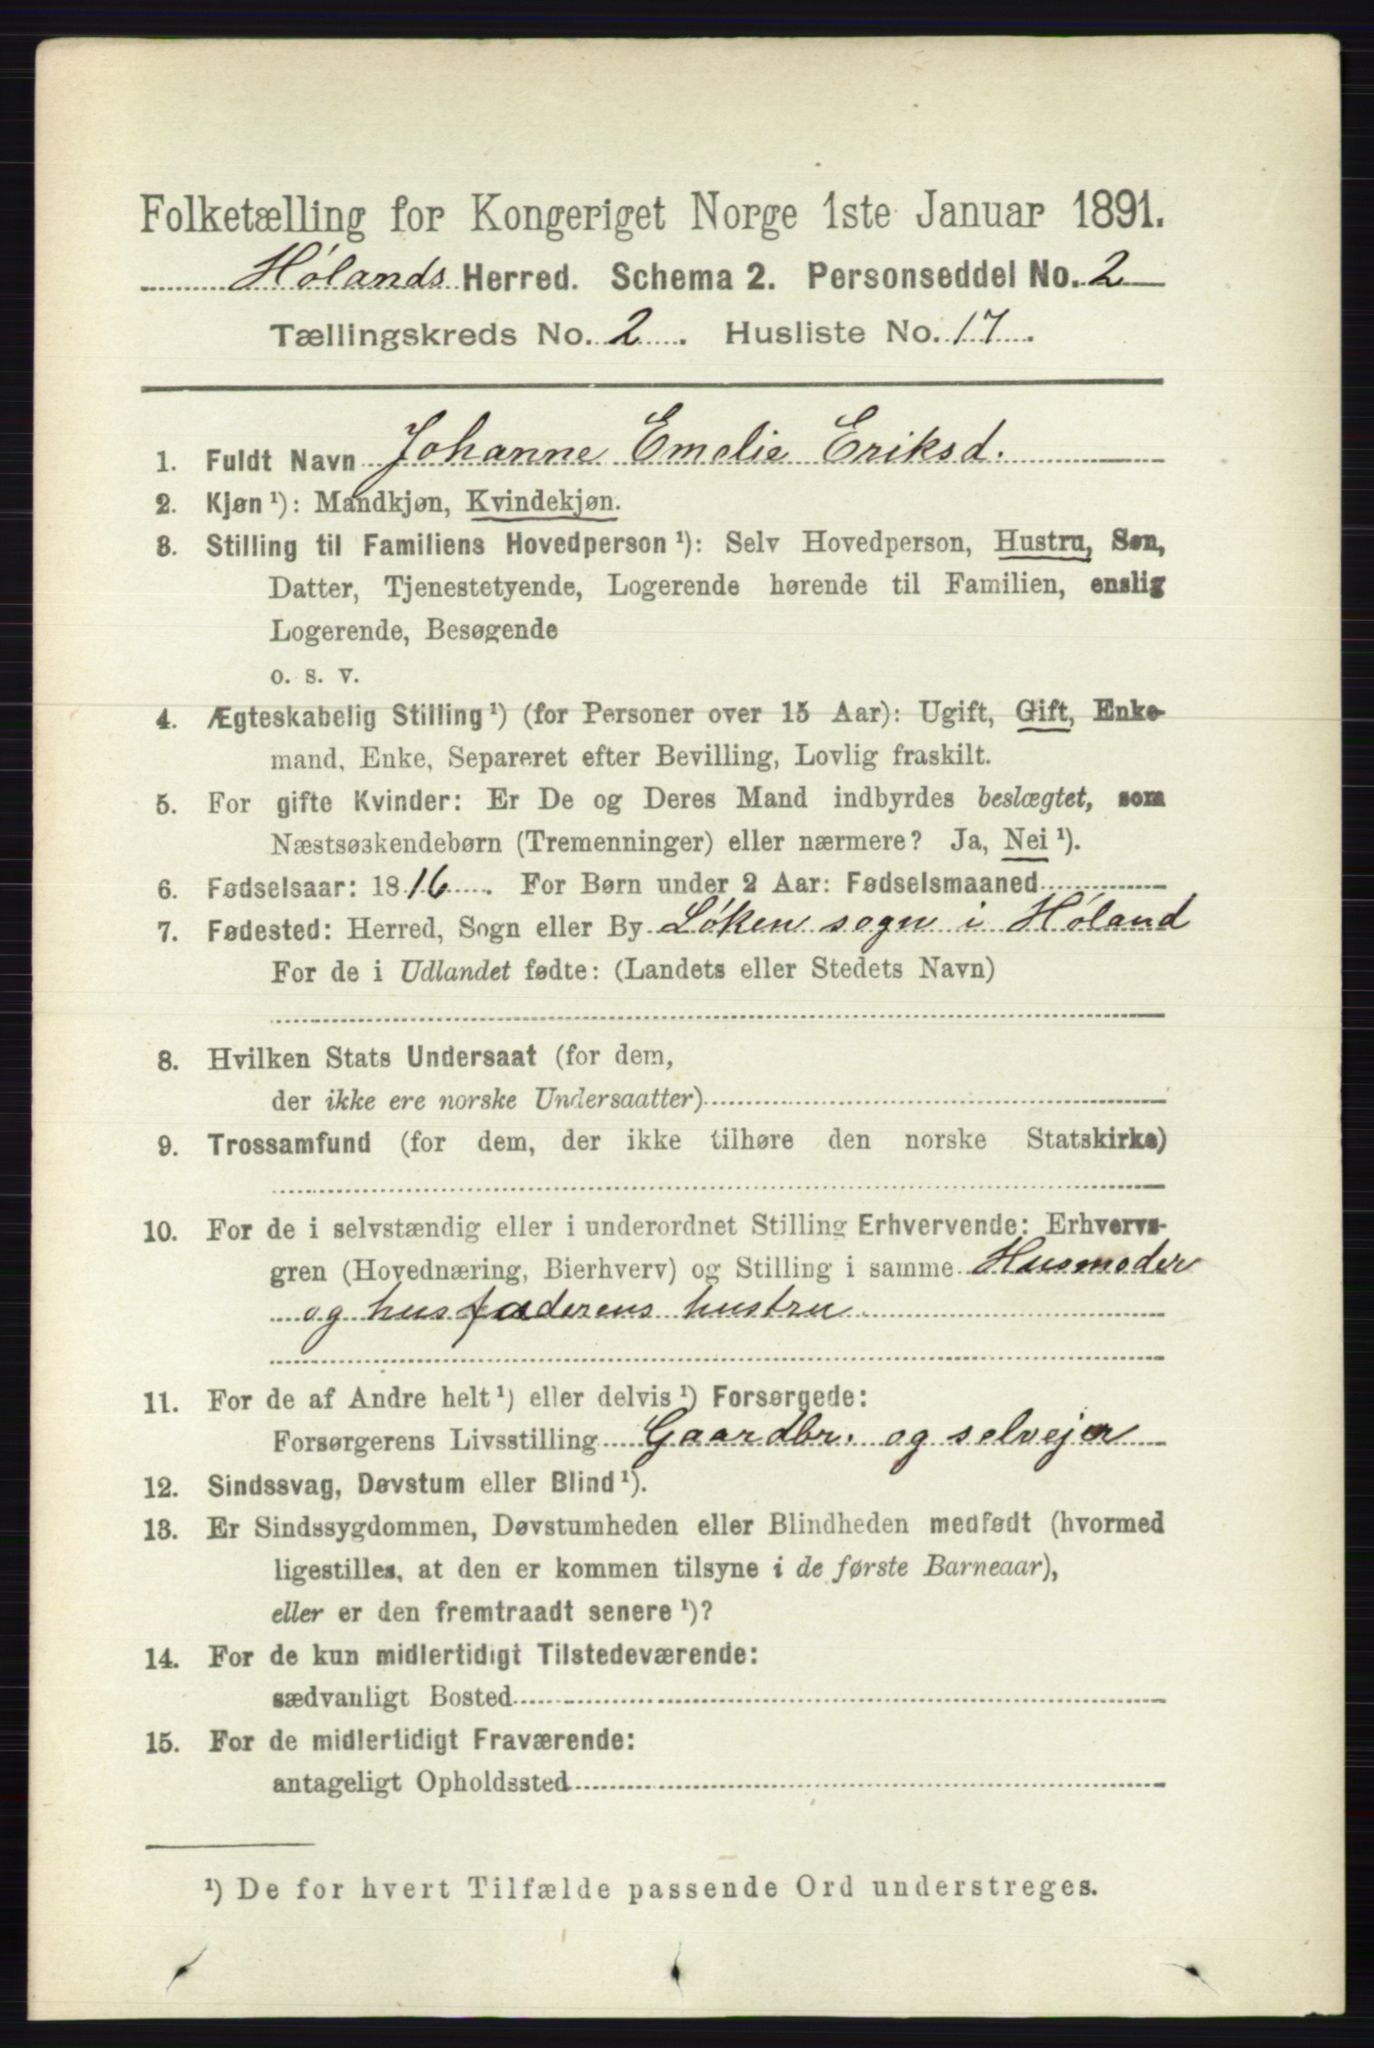 Folketælling for Kongeriget Norge 1ste Januar 1891.
Hølands Herred. Schema 2. Personseddel No. 2
Tællingskreds No. 2. Husliste No. 17.
1. Fuldt Navn Johanne Emelie Eriksd.
2. Kjøn ¹): Mandkjøn, Kvindekjøn.
3. Stilling til Familiens Hovedperson ¹): Selv Hovedperson, Hustru, Søn,
Datter, Tjenestetyende, Logerende hørende til Familien, enslig
Logerende, Besøgende
o. s. v.
4. Ægteskabelig Stilling ¹) (for Personer over 15 Aar): Ugift, Gift, Enke-
mand, Enke, Separeret efter Bevilling, Lovlig fraskilt.
5. For gifte Kvinder: Er De og Deres Mand indbyrdes beslægtet, som
Næstsøskendebørn (Tremenninger) eller nærmere? Ja, Nei ¹).
6. Fødselsaar: 1816. For Børn under 2 Aar: Fødselsmaaned
7. Fødested: Herred, Sogn eller By Løken sogn i Høland
For de i Udlandet fødte: (Landets eller Stedets Navn)
8. Hvilken Stats Undersaat (for dem,
der ikke ere norske Undersaatter)
9. Trossamfund (for dem, der ikke tilhøre den norske Statskirke)
10. For de i selvstændig eller i underordnet Stilling Erhvervende: Erhvervs-
gren (Hovednæring, Bierhverv) og Stilling i samme Husmoder
og husfaderens hustru
11. For de af Andre helt ¹) eller delvis ¹) Forsørgede:
Forsørgerens Livsstilling Gaardbr. og selvejer
12. Sindssvag, Døvstum eller Blind ¹).
13. Er Sindssygdommen, Døvstumheden eller Blindheden medfødt (hvormed
ligestilles, at den er kommen tilsyne i de første Barneaar),
eller er den fremtraadt senere ¹)?
14. For de kun midlertidigt Tilstedeværende:
sædvanligt Bosted
15. For de midlertidigt Fraværende:
antageligt Opholdssted
¹) De for hvert Tilfælde passende Ord understreges.